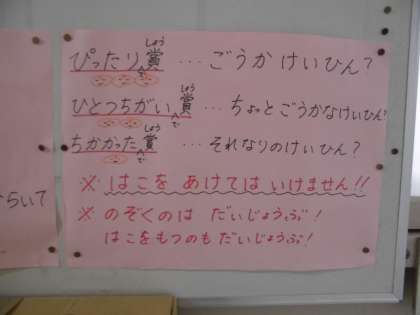 ぴったり賞で … ごうかけいひん?
ひとつちがい賞で … ちょっとごうかなけいひん?
ちかかった賞で … それなりのけいひん?
※ はこを あけては いけません!!
※ のぞくのは だいじょうぶ!
はこをもつのもだいじょうぶ!
らいて